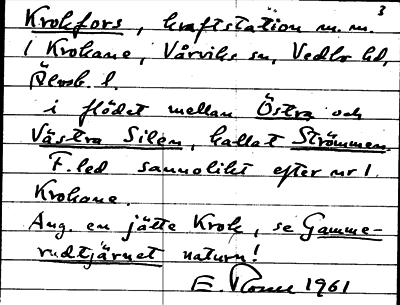 3
Krokfors, kraftstation m. m.
/ Krokane, Vårviks sn, Vedbo hd,
Älvsb. l.
i flödet mellan Östra och
Västra Silen, kallat Strömmen.
F. led sannolikt efter nr 1.
Krokane.
Ang. en jätte Krok, se Gamme-
rudtjärnet naturn!
E. 1961